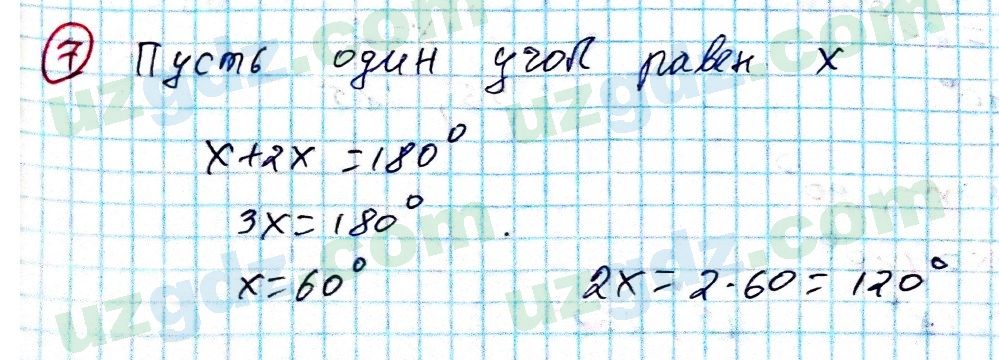 7 Пусть один угол равен x
x+2x=180°
3x=180°
x=60° 2x=2·60=120°
uzgdz.com
uzgdz.com
uzgdz.com
uzgdz.com